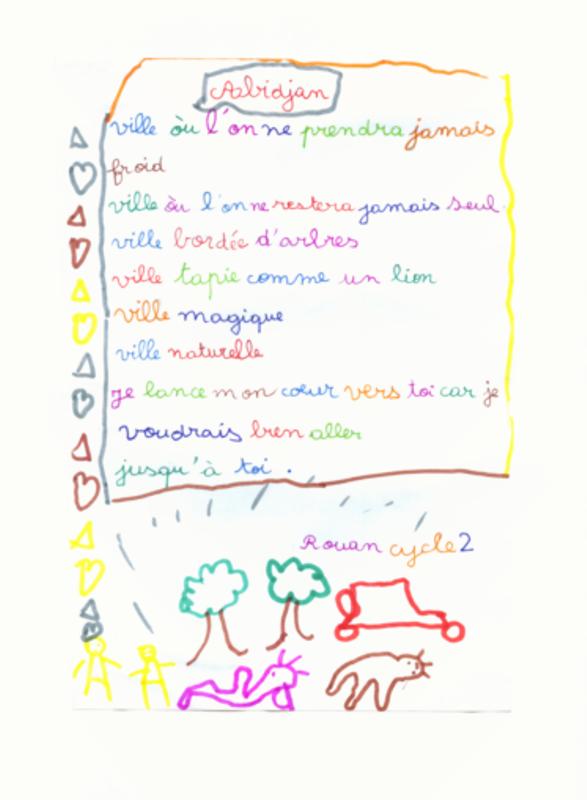 Abidjan
ville où l'on ne prendra jamais
froid
ville où l'on ne restera jamais seul.
ville bordée d'arbres
ville tapie comme un lion
ville magique
ville naturelle
je lance mon cœur vers toi car je
voudrais bien aller
jusqu'à toi.
Rouan cycle 2